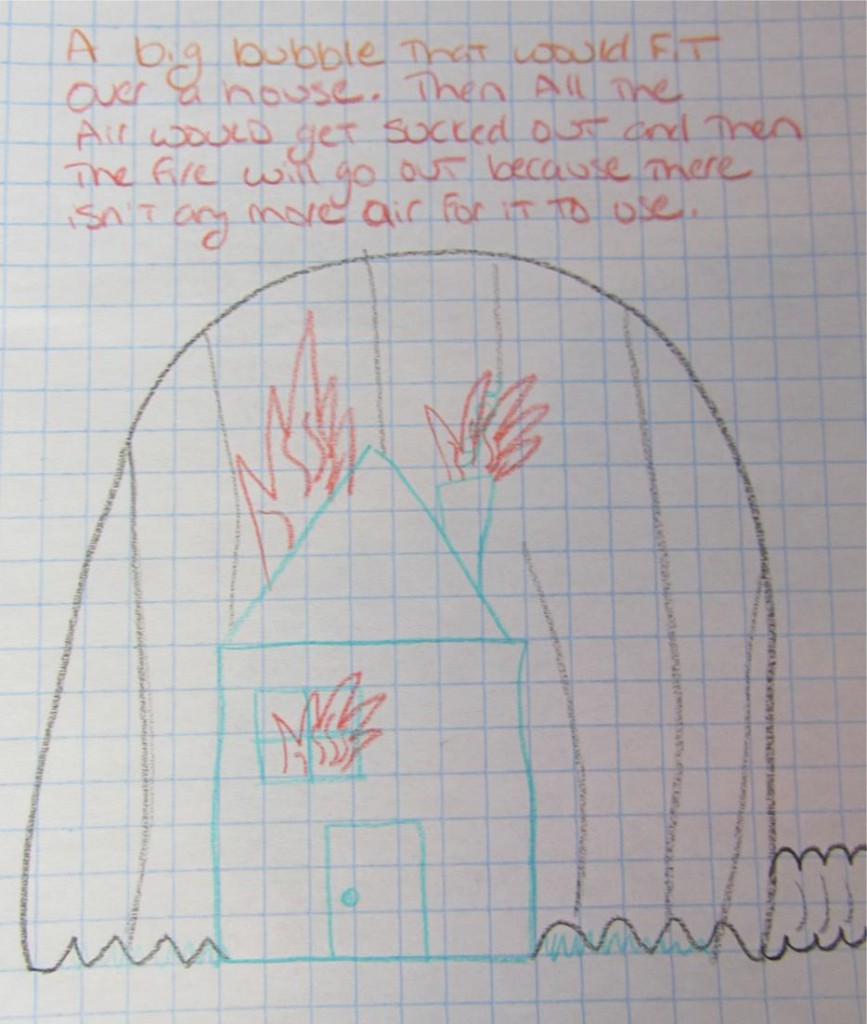 A big bubble That would FiT
over a house. Then All The
Air would get sucked out and Then
The fire will go out because There
isn't any more air for it To use.